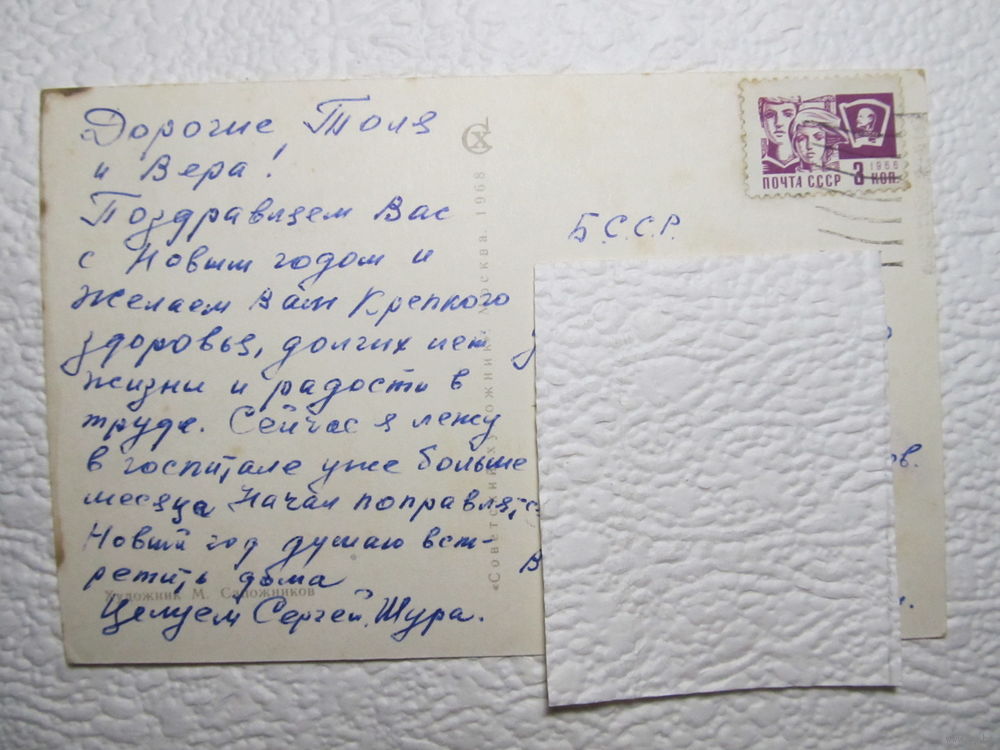 Дорогие Толя
и Вера!
Поздравляем Вас
с Новым годом и
желаем Вам Крепкого
здоровья, долгих лет
жизни и радости в
труде. Сейчас я лежу
в госпитале уже больше
месяца Начал поправлятс
Новый год думаю вст-
ретить дома
Целуем Сергей. Шура.
Художник М. Сапожников
«Советский художник». Москва. 1968
ПОЧТА СССР 3 КОП.
1966
Б.С.С.Р.